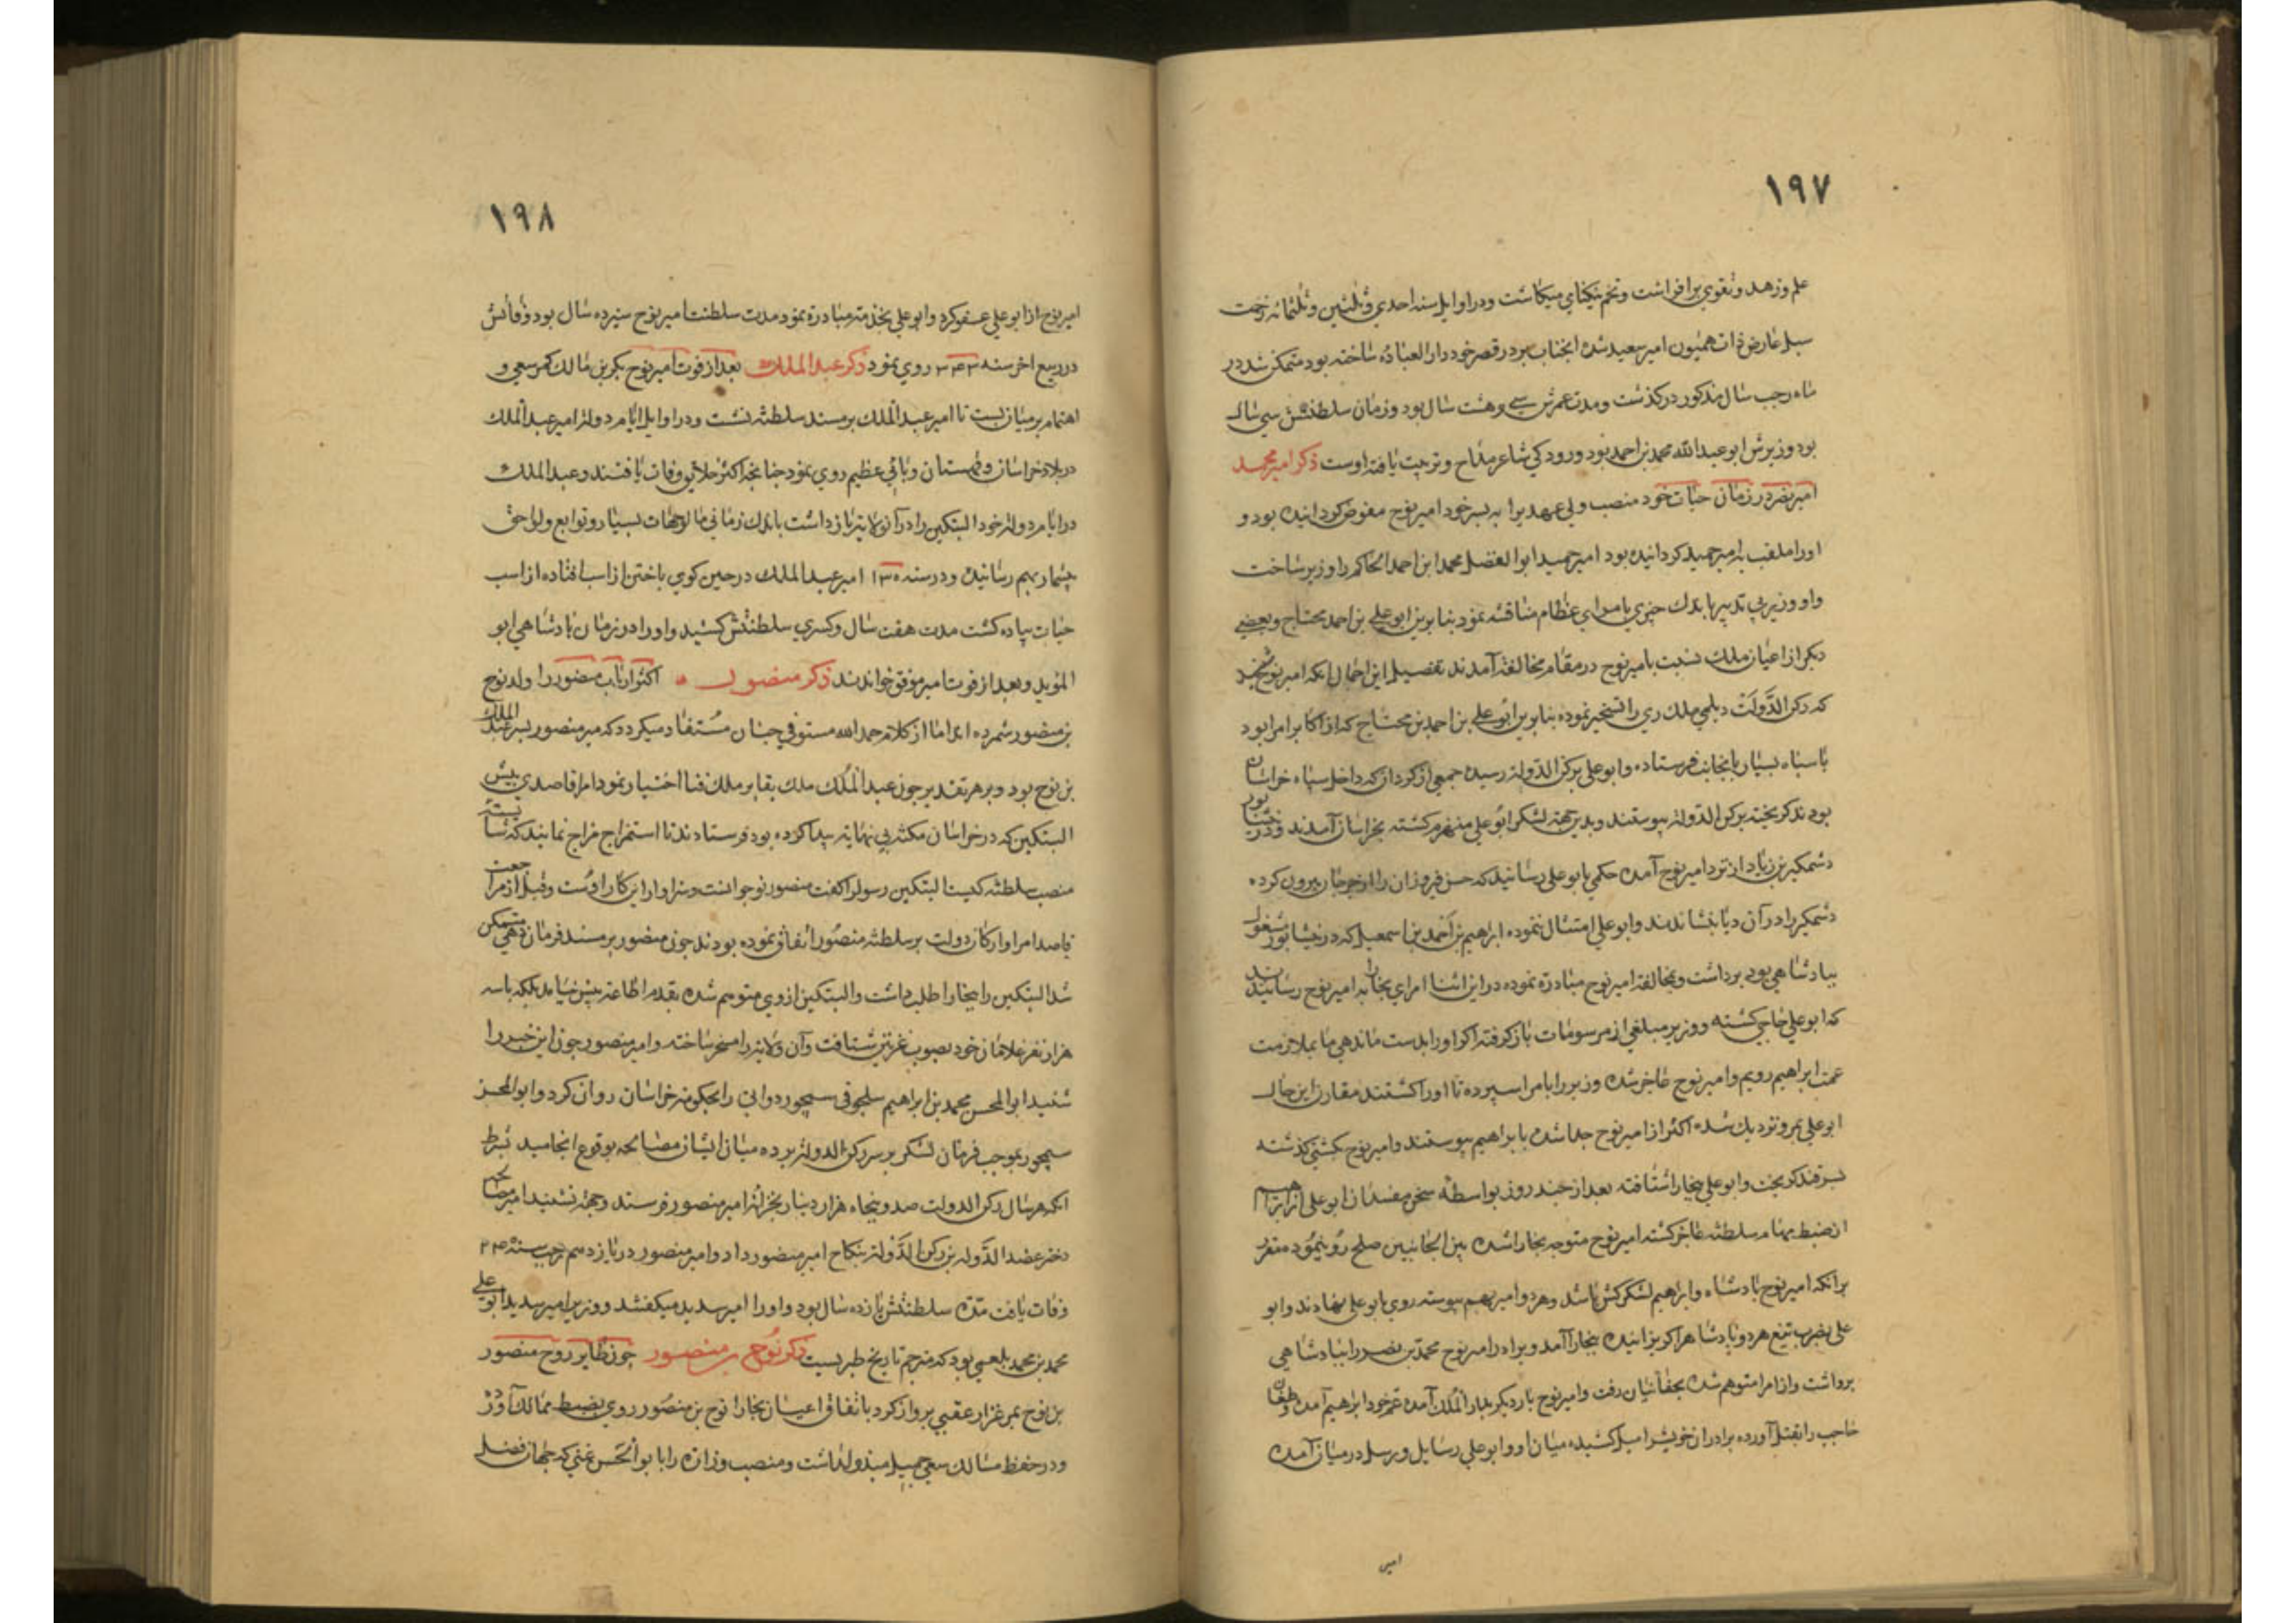 ١٩٧
علم وزهد وتقوي برافراشت وتخم نیکنامي میکاشت ودراوایل سنه احدي وثلثین وثلثمائه زحمت
سل عارض ذات همیون امیر سعید شده انجناب بر در قصر خود دار العباده ساخته بود متمکن شد در
ماه رجب سال مذکور درکذشت ومدت عمرش سي وهشت سال بود وزمان سلطنتش سي سال
بود وزیرش ابو عبد الله محمد بن احمد بود ورودکي شاعر مداح وتربیت یافته اوست ذکر امیر حمید
امیر نصر در زمان حیات خود منصب ولي عهدیرا به پسر خود امیر نوح مفوض کردانیده بود و
اورا ملقب بامیر حمید کردانیده بود امیر حمید ابو الفضل محمد ابن احمد الحاکم را وزیر ساخت
واو وزیر بي تدبیر باندك چیزي با امراي عظام مناقشه نمود بنابرین ابو علي بن احمد محتاج وبعضي
دیکر از اعیان ملك نسبت بامیر نوح در مقام مخالفة آمدند تفصیل این اجمال انکه امیر نوح شنید
که رکن الدولت دیلمي ملك ري را تسخیر نموده بنابرین ابو علي بن احمد بن محتاج که از اکابر امرا بود
با سپاه بسیار بانجانب فرستاده وابو علي برکن الدوله رسیده جمعي از کردان که داخل سپاه خراسان
بودند کریخته برکن الدوله پیوستند وبدین جهة لشکر ابو علي منهزم کشته بخراسان آمدند ودر نیشابور
دشمکیر بن زیاد از نزد امیر نوح آمده حکمي بابو علي رسانید که حسن فیروزان را از جرجان بیرون کرده
دشمکیر را در آن دیار بنشانند وابو علي امتثال نموده ابراهیم بن احمد بن اسمعیل که در نیشابور مشغول
بپادشاهي بود برداشت وبمخالفة امیر نوح مبادرة نموده در این اثنا امراي بخارا به امیر نوح رسانیدند
که ابو علي حاجي کشته ووزیر مبلغي از مرسومات باز کرفته اکر اورا بدست ما ندهي ما بملازمت
عمت ابراهیم رویم وامیر نوح عاجز شده وزیر را بامرا سپرده تا اورا کشتند مقارن این حال
ابو علي بمرو نزدیك شده اکثر از امیر نوح جدا شده بابراهیم پیوستند وامیر نوح بکشتي کذشته
بسمرقند کریخت وابو علي ببخارا شتافته بعد از چند روز بواسطه سخن مفسدان ابو علي از ابراهیم
از ضبط مهام سلطنه عاجز کشته امیر نوح متوجه بخارا شده بین الجانبین صلح روینموده مقرر
برانکه امیر نوح پادشاه وابراهیم لشکرکش باشد وهر دو امیر بهم پیوسته روي بابو علي نهادند وابو
علي بضرب تیغ هر دو پادشاهرا کریزانیده ببخارا آمد وبرادر امیر نوح محمد بن نصر را بپادشاهي
برداشت واز امرا متوهم شده بچفانیان رفت وامیر نوح بار دیکر بدار الملك آمده عم خود ابراهیم آمده وطغان
حاجب را بقتل آورده برادران خویشرا میل کشیده میان او وابو علي رسایل ورسل در میان آمده
امیر
١٩٨
امیر نوح از ابو علي عفو کرد وابو علي بخدمته مبادرة نمود مدت سلطنت امیر نوح سیزده سال بود وفاتش
در ربیع اخر سنه ٣٤٣ روي نمود ذکر عبد الملك بعد از فوت امیر نوح بکر بن مالك کمر سعي و
اهتمام بر میان بست تا امیر عبد الملك بر مسند سلطنه نشست ودر اوایل ایام دولة امیر عبد الملك
در بلاد خراسان وقهستان وبائي عظیم روي نمود چنانچه اکثر خلایق وفات یافتند وعبد الملك
در ایام دولة خود البتکین را در آنولایة باز داشت باندك زماني مالوجهات بسیار وتوابع ولواحق
بیشمار بهم رسانیده ودر سنه امیر عبد الملك در حین کوي باختن از اسب افتاده از اسب
حیات پیاده کشت مدت هفت سال وکسري سلطنتش کشید واورا در زمان پادشاهي ابو
المؤید وبعد از فوت امیر موفق خواندند ذکر منصور اکثر ارباب منصور را ولد نوح
بن منصور شمرده اند اما از کلام حمد الله مستوفي چنان مستفاد میکردد که میر منصور پسر عبد الملك
بن نوح بود وبر هر تقدیر چون عبد الملك ملك بقا بر ملك فنا اختیار نمود امرا قاصدي پیش
البتکین که در خراسان مکنة بي نهایة پیدا کرده بود فرستادند تا استمزاج مزاج نمایند که شایسته
منصب سلطنه کیست البتکین رسولرا کفت منصور نوجوانست وسزاوار این کار اوست وقبل از مراجعت
قاصد امرا وارکان دولت بر سلطنه منصور اتفاق نموده بودند چون منصور بر مسند فرمان دهي متمکن
شد البتکین را ببخارا طلب داشت والبتکین از وي متوهم شده بقدم اطاعة پیش نیامد بلکه با سه
هزار نفر غلامان خود بصوب غزنین شتافت وآن ولایة را مسخر ساخته وامیر منصور چون این خبر را
شنید ابو المحسن محمد بن ابراهیم سلجوقي سیمجور دواتي را بحکومة خراسان روان کرد وابو المحسن
سیمجور بموجب فرمان لشکر بر سر رکن الدوله برده میان ایشان مصالحه بوقوع انجامید بشرط
انکه هر سال رکن الدولت صد وپنجاه هزار دینار بخزانه امیر منصور فرستد وجهة تشیید امر مصالحه
دختر عضد الدوله بن رکن الدوله بنکاح امیر منصور داد وامیر منصور در یازدهم رجب سنه
وفات یافت مدة سلطنتش یازده سال بود واورا امیر سدید میکفتند ووزیر امیر سدید ابو علي
محمد بن محمد بلعمي بود که مترجم تاریخ طبریست ذکر نوح بن منصور چون طایر روح منصور
بن نوح بمرغزار عقبي پرواز کرد باتفاق اعیان بخارا نوح بن منصور روي بضبط ممالك آورد
ودر حفظ مسالك سعي جمیل مبذولداشت ومنصب وزارة را بابو الحسن عتبي که جهان فضل